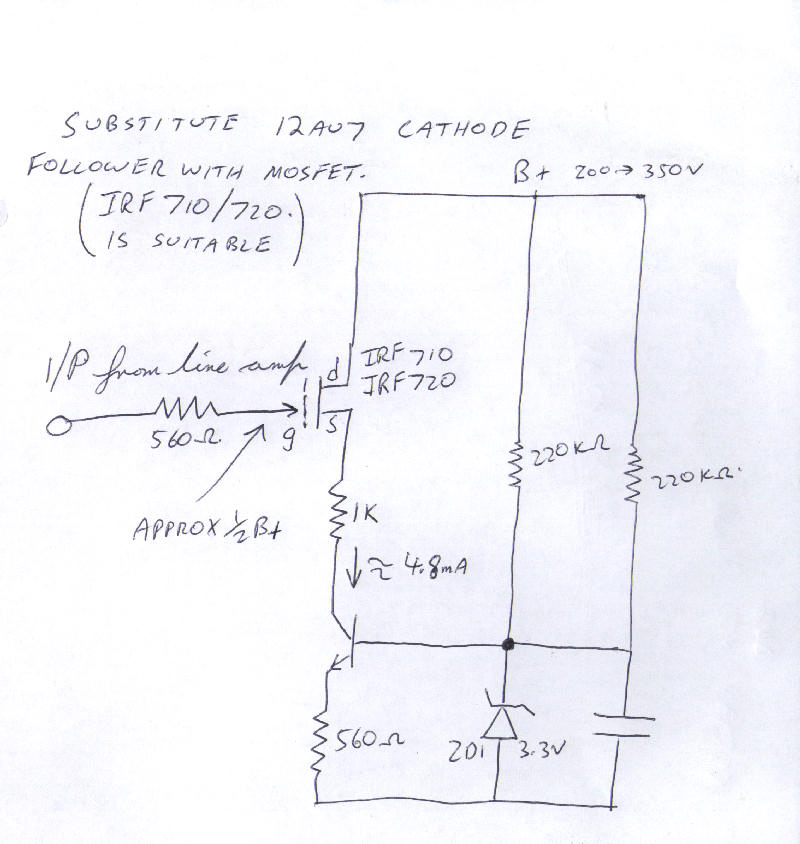 SUBSTITUTE 12AU7 CATHODE
FOLLOWER WITH MOSFET.
(IRF 710/720.
IS SUITABLE)
B+ 200→350V
I/P from line amp
d
IRF 710
IRF 720
560Ω
g
s
220KΩ
220KΩ
APPROX ½ B+
1K
≈ 4.8mA
560Ω
3.3V